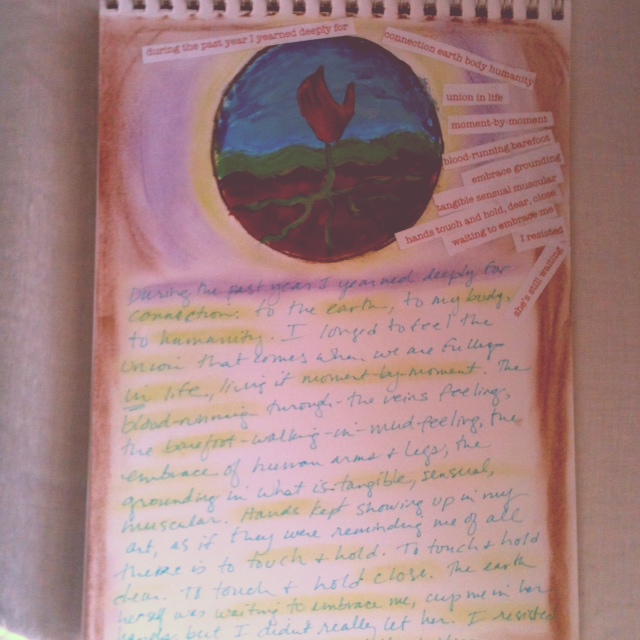 during the past year I yearned deeply for
connection earth body humanity
union in life
moment-by-moment
blood-running barefoot
embrace grounding
tangible sensual muscular
hands touch and hold, dear, close
waiting to embrace me
I resisted
she's still waiting
During the past year I yearned deeply for
connection: to the earth, to my body,
to humanity. I longed to feel the
union that comes when we are fully
in life, living it moment-by-moment. The
blood-running through-the veins feeling,
the barefoot-walking-in-mud-feeling, the
embrace of human arms & legs, the
grounding in what is tangible, sensual,
muscular. Hands kept showing up in my
art, as if they were reminding me of all
there is to touch & hold. To touch & hold
dear. To touch & hold close. The earth
herself was waiting to embrace me, cup me in her
hands but I didn't really let her. I resisted